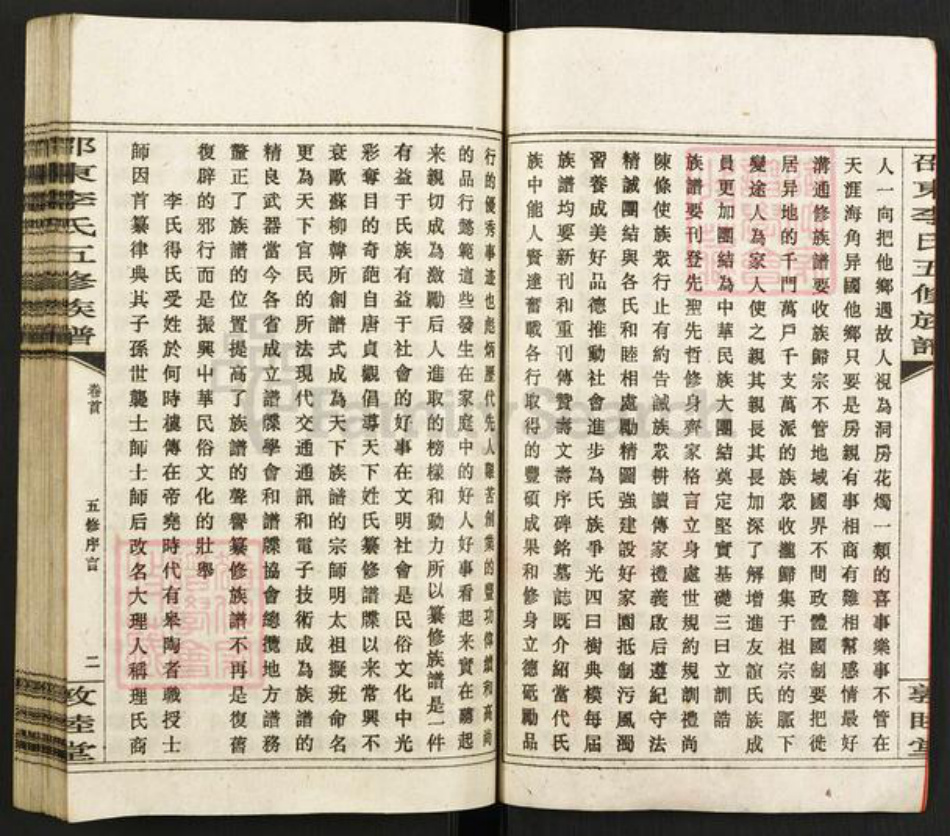 人一向把他鄉遇故人視為洞房花燭一類的喜事樂事不管在
天涯海角异國他鄉只要是房親有事相商有難相幫感情最好
溝通修族譜要收族歸宗不管地域國界不問政體國制要把徙
居异地的千門萬戶千支萬派的族眾收攏歸集于祖宗的脈下
變途人為家人使之親其親長其長加深了解增進友誼氏族成
員更加團結為中華民族大團結奠定堅實基礎三曰立訓誥
族譜要刊登先聖先哲修身齊家格言立身處世規約規訓禮尚
陳條使族眾行止有約告誡族眾耕讀傳家禮義啟后遵紀守法
精誠團結與各氏和睦相處勵精圖強建設好家園抵制污風濁
習養成美好品德推動社會進步為氏族爭光四曰樹典模每屆
族譜均要新刊和重刊傳贊壽文壽序碑銘墓誌既介紹當代氏
族中能人賢達奮戰各行取得的豐碩成果和修身立德砥勵品
行的優秀事迹也彪炳歷代先人艱苦創業的豐功偉績和高尚
的品行懿範這些發生在家庭中的好人好事看起來實在藹起
來親切成為激勵后人進取的榜樣和動力所以纂修族譜是一件
有益于氏族有益于社會的好事在文明社會是民俗文化中光
彩奪目的奇葩自唐貞觀倡導天下姓氏纂修譜牒以來常興不
衰歐蘇柳韓所創譜式成為天下族譜的宗師明太祖擬班命名
更為天下官民的所法現代交通通訊和電子技術成為族譜的
精良武器當今各省成立譜牒學會和譜牒協會總攬地方譜務
釐正了族譜的位置提高了族譜的聲譽纂修族譜不再是復舊
復辟的邪行而是振興中華民俗文化的壯舉
李氏得氏受姓於何時據傳在帝堯時代有皋陶者職授士
師因首纂律典其子孫世襲士師士師后改名大理人稱理氏商
邵東李氏五修族譜
卷首
五修序言
二
敦睦堂